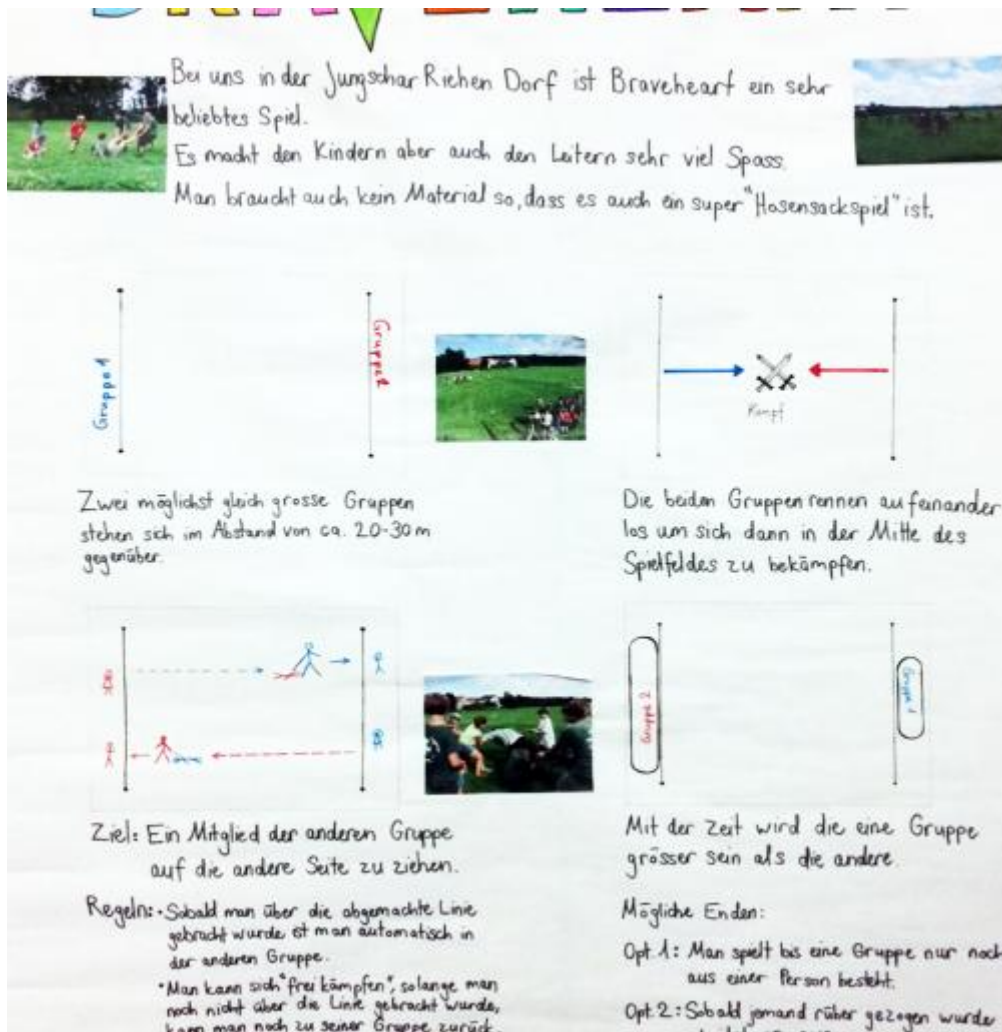 Bei uns in der Jungschar Riehen Dorf ist Braveheart ein sehr
beliebtes Spiel.
Es macht den Kindern aber auch den Leitern sehr viel Spass.
Man braucht auch kein Material so, dass es auch ein super "Hosensackspiel" ist.
Gruppe 1
Gruppe 2
Kampf
Zwei möglichst gleich grosse Gruppen
stehen sich im Abstand von ca. 20-30 m
gegenüber.
Die beiden Gruppen rennen aufeinander
los um sich dann in der Mitte des
Spielfeldes zu bekämpfen.
Gruppe 2
Gruppe 1
Ziel: Ein Mitglied der anderen Gruppe
auf die andere Seite zu ziehen.
Mit der Zeit wird die eine Gruppe
grösser sein als die andere.
Regeln: • Sobald man über die abgemachte Linie
gebracht wurde ist man automatisch in
der anderen Gruppe.
• Man kann sich "frei kämpfen", solange man
noch nicht über die Linie gebracht wurde,
kann man noch zu seiner Gruppe zurück.
Mögliche Enden:
Opt. 1: Man spielt bis eine Gruppe nur noch
aus einer Person besteht.
Opt. 2: Sobald jemand rüber gezogen wurde